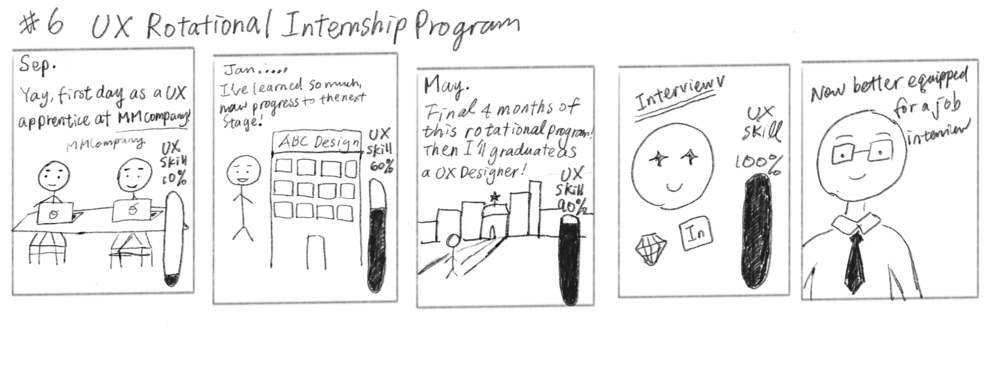 #6 UX Rotational Internship Program
Sep.
Yay, first day as a UX
apprentice at MMcompany!
MMCompany
UX
Skill
10%
Jan.....
I've learned so much,
now progress to the next
stage!
ABC Design
UX
Skill
60%
May.
Final 4 months of
this rotational program!
Then I'll graduate as
a UX Designer!
UX
Skill
90%
Interview V
UX
Skill
100%
In
Now better equipped
for a job
interview